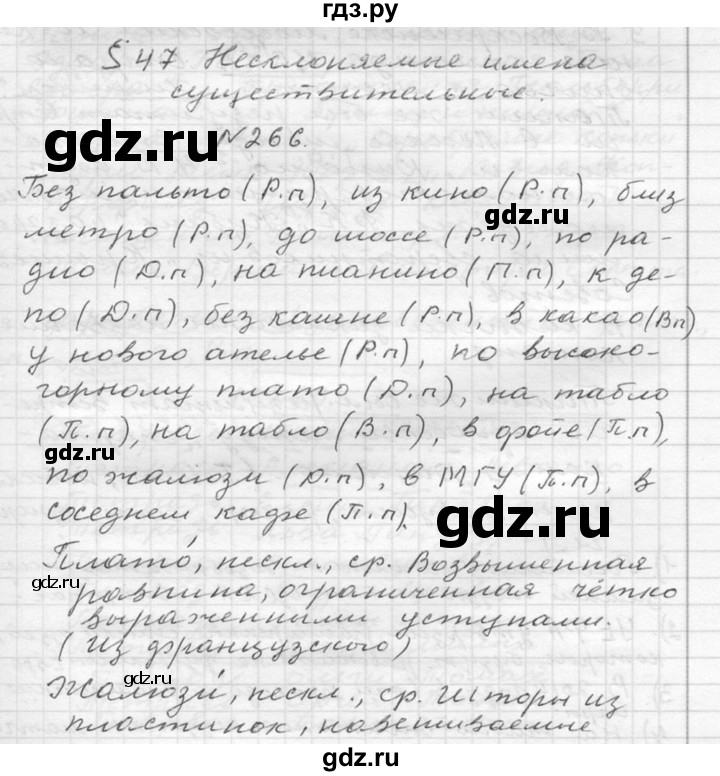 гдз.ру
§ 47 Несклоняемые имена
существительные.
gdz.ru
№ 266.
Без пальто (Р.п), из кино (Р.п), близ
gdz.ru
метро (Р.п), до шоссе (Р.п), по ра-
дио (Д.п), на пианино (П.п), к де-
по (Д.п), без кашне (Р.п), в какао (Вп)
у нового ателье (Р.п), по высоко-
горному плато (Д.п), на табло
gdz.ru
(П.п), на табло (В.п), в фойе (П.п),
по жалюзи (Д.п), в МГУ (П.п), в
соседнем кафе (П.п).
gdz.ru
Плато́, нескл., ср. Возвышенная
gdz.ru
равнина, ограниченная чётко
выраженными уступами.
(Из французского)
gdz.ru
Жалюзи́, нескл., ср. Шторы из
пластинок, навешиваемые
gdz.ru